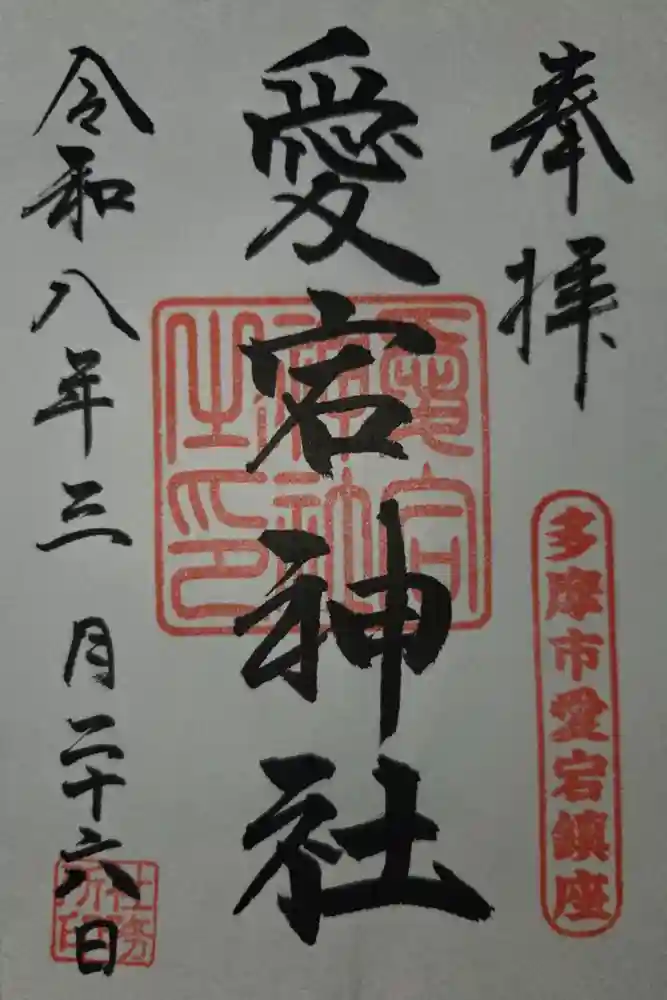 奉拝
多摩市愛宕鎮座
愛宕神社
愛宕神社之印
令和八年三月二十六日
社務所印